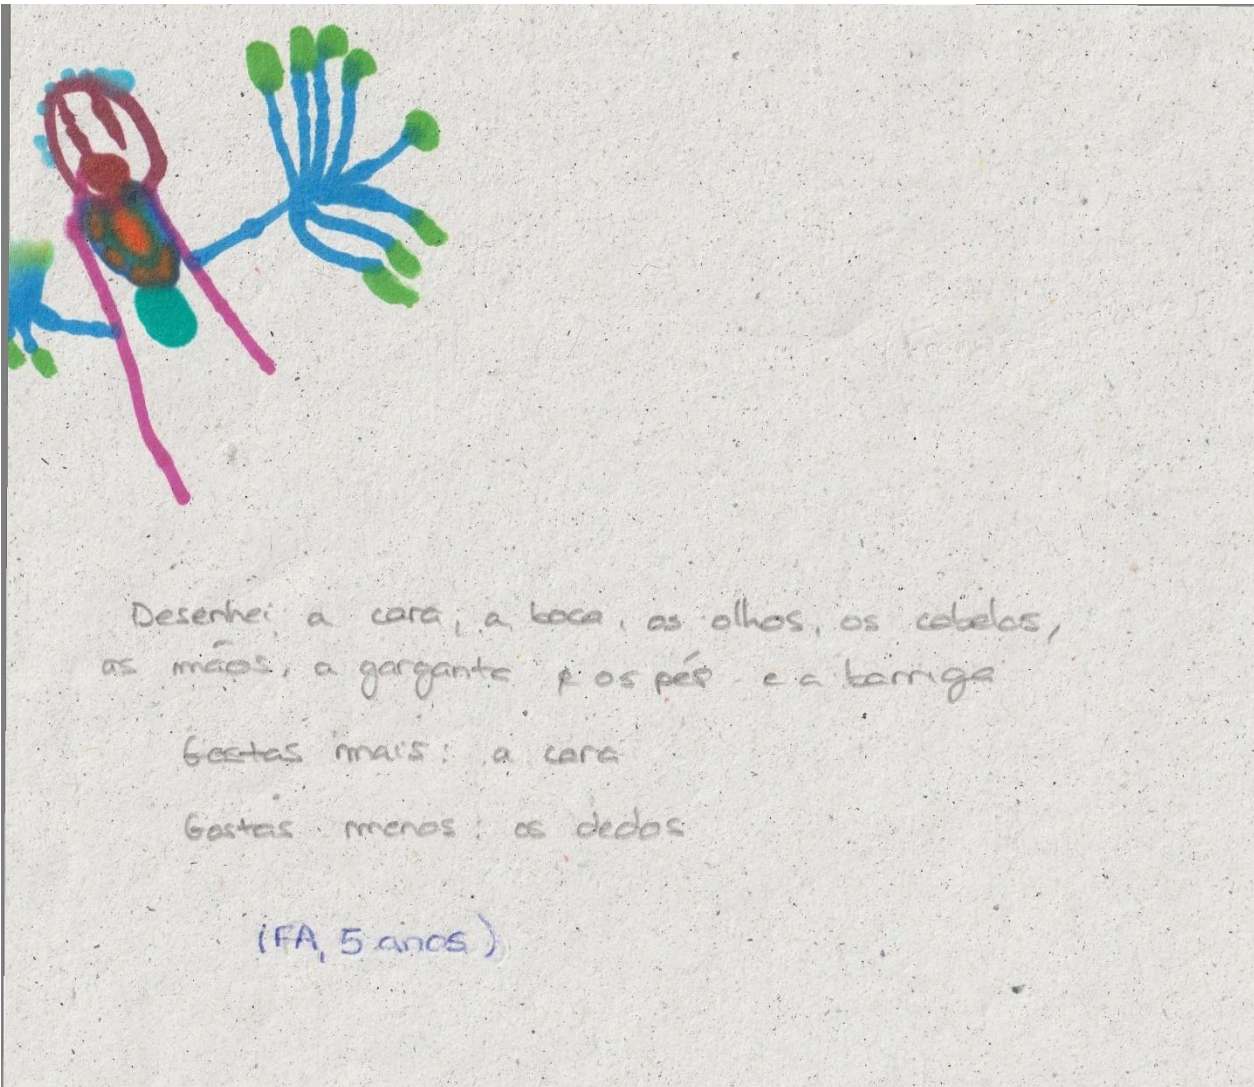 Desenhei a cara, a boca, os olhos, os cabelos,
as mãos, a garganta e os pés e a barriga
Gostas mais: a cara
Gostas menos: os dedos
(FA, 5 anos)